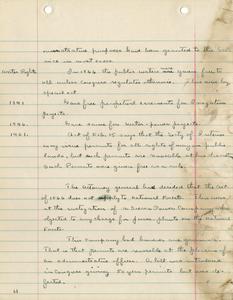 administrative purposes have been granted to this Ser-
vice in most cases.
Water Rights In 1866 the public waters were given free to
all unless Congress regulates otherwise. This was by
special act.
1891. Gave free perpetual easements for Irrigation
projects.
1896. Gave same for water-power projects.
1901. Act of Feb. 15 says that the Sec'y of Interior
may issue permits for all rights of way on public
lands, but such permits are revocable at his discretion
Such Permits were given free as such.
The Attorney general had decided that the Act
of 1866 does not apply to National Forests. This was
at the instigation of a Power Company who
objected to any charge for power plants on the National
Forests.
This company had hundreds and
That is that permits are revocable at the pleasure of
an administrative officer. A bill was introduced
in Congress giving 50 year permits but was de-
feated.